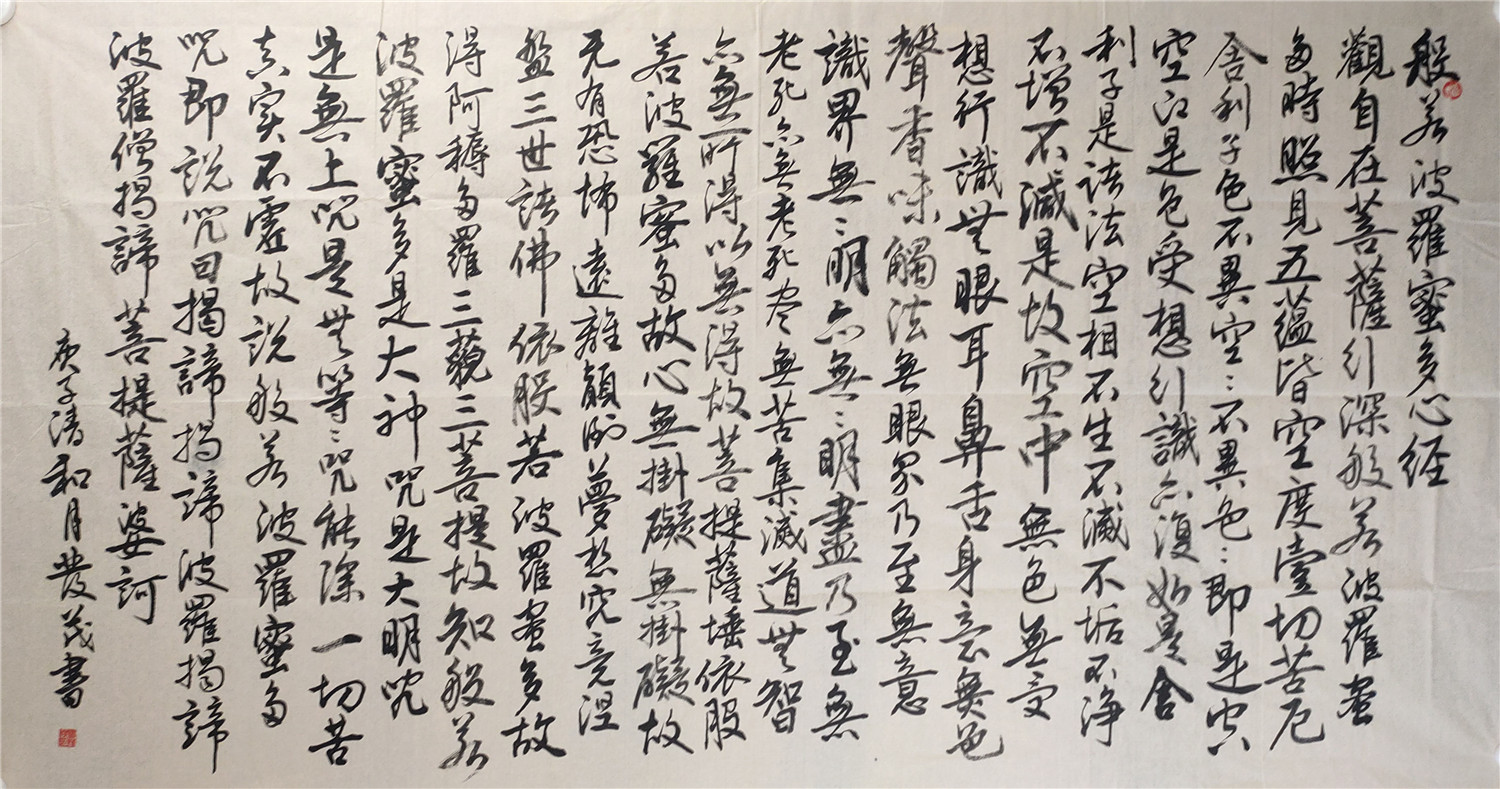 般若波羅蜜多心经
觀自在菩薩行深般若波羅蜜
多時照見五蘊皆空度壹切苦厄
舍利子色不異空〻不異色〻即是空
空即是色受想行識亦復如是舍
利子是諸法空相不生不滅不垢不净
不增不減是故空中無色無受
想行識無眼耳鼻舌身意無色
聲香味觸法無眼界乃至無意
識界無〻明亦無〻明盡乃至無
老死亦無老死尽無苦集滅道無智
亦無所得以無得故菩提薩埵依般
若波羅蜜多故心無掛礙無掛礙故
无有恐怖遠離顛倒夢想究竟涅
盤三世諸佛依般若波羅蜜多故
得阿耨多羅三藐三菩提故知般若
波羅蜜多是大神咒是大明咒
是無上咒是無等〻咒能除一切苦
真实不虛故説般若波羅蜜多
咒即説咒曰揭諦揭諦波羅揭諦
波羅僧揭諦菩提薩婆訶
庚子清和月發茂書